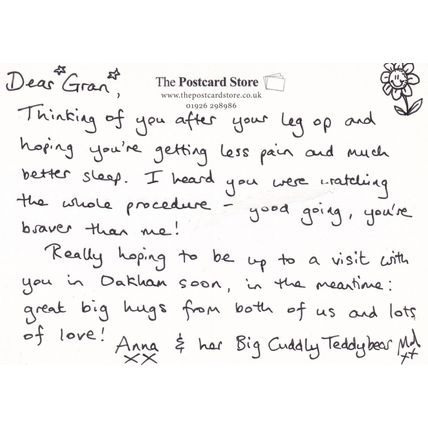 Dear Gran,
The Postcard Store
www.thepostcardstore.co.uk
01926 298986
Thinking of you after your leg op and
hoping you're getting less pain and much
better sleep. I heard you were watching
the whole procedure - good going, you're
braver than me!
Really hoping to be up to a visit with
you in Oakham soon, in the meantime:
great big hugs from both of us and lots
of love! Anna & her Big Cuddly Teddybear
xx xx